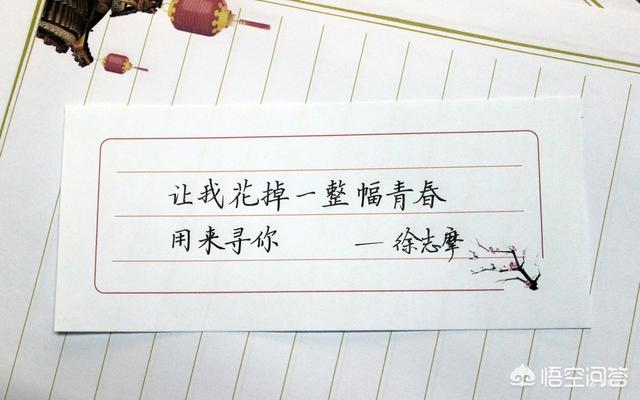 让我花掉一整幅青春
用来寻你 —徐志摩
悟空问答